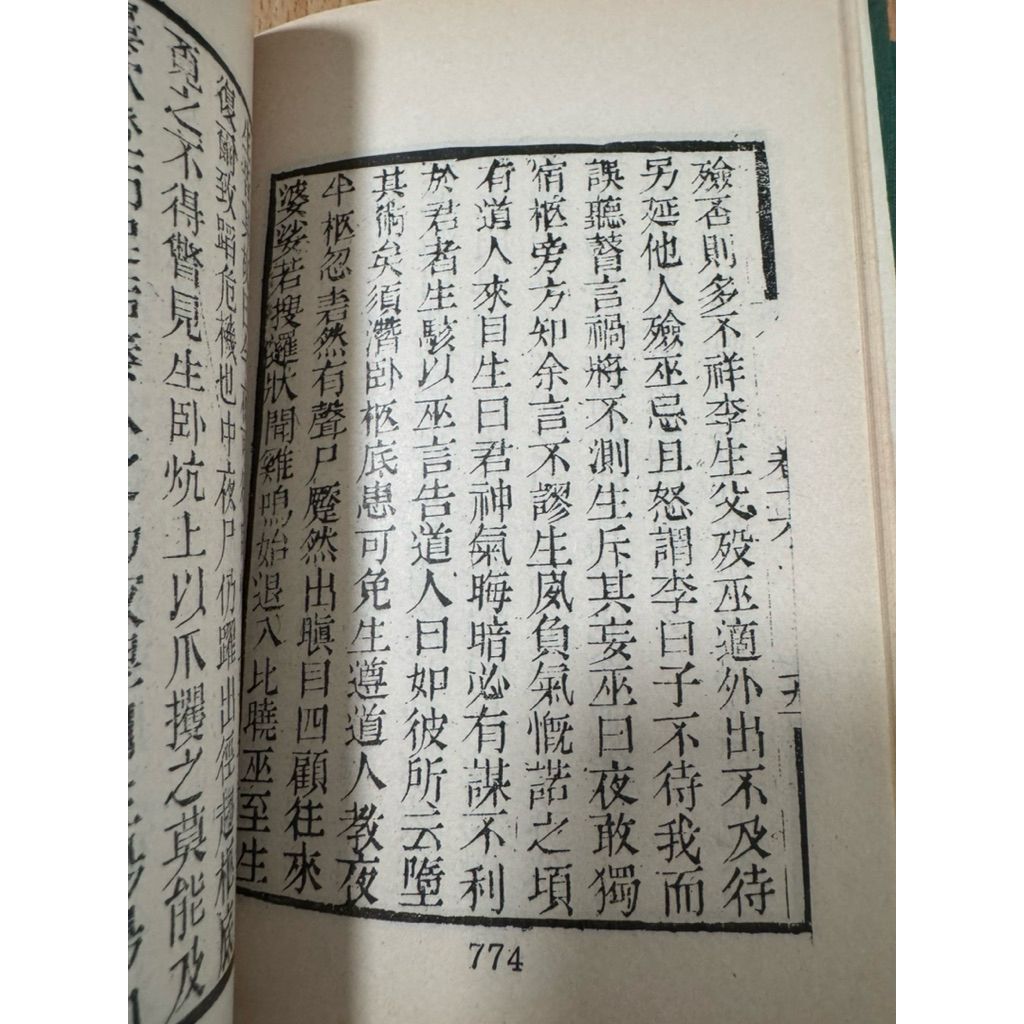 殮否則多不祥李生父殁巫適外出不及待
另延他人殮巫忌且怒謂李曰子不待我而
誤聽瞽言禍將不測生斥其妄巫曰夜敢獨
宿柩旁方知余言不謬生夙負氣慨諾之頃
有道人來目生曰君神氣晦暗必有謀不利
於君者生駭以巫言告道人曰如彼所云墮
其術矣須潛卧柩底患可免生遵道人教夜
半柩忽砉然有聲尸蹷然出瞋目四顧往來
婆娑若搜邏狀聞雞鳴始退入比曉巫至生
復爾致蹈危機也中夜尸仍躍出徑趨柩底
覓之不得瞥見生卧炕上以爪攫之莫能及
卷十六
774